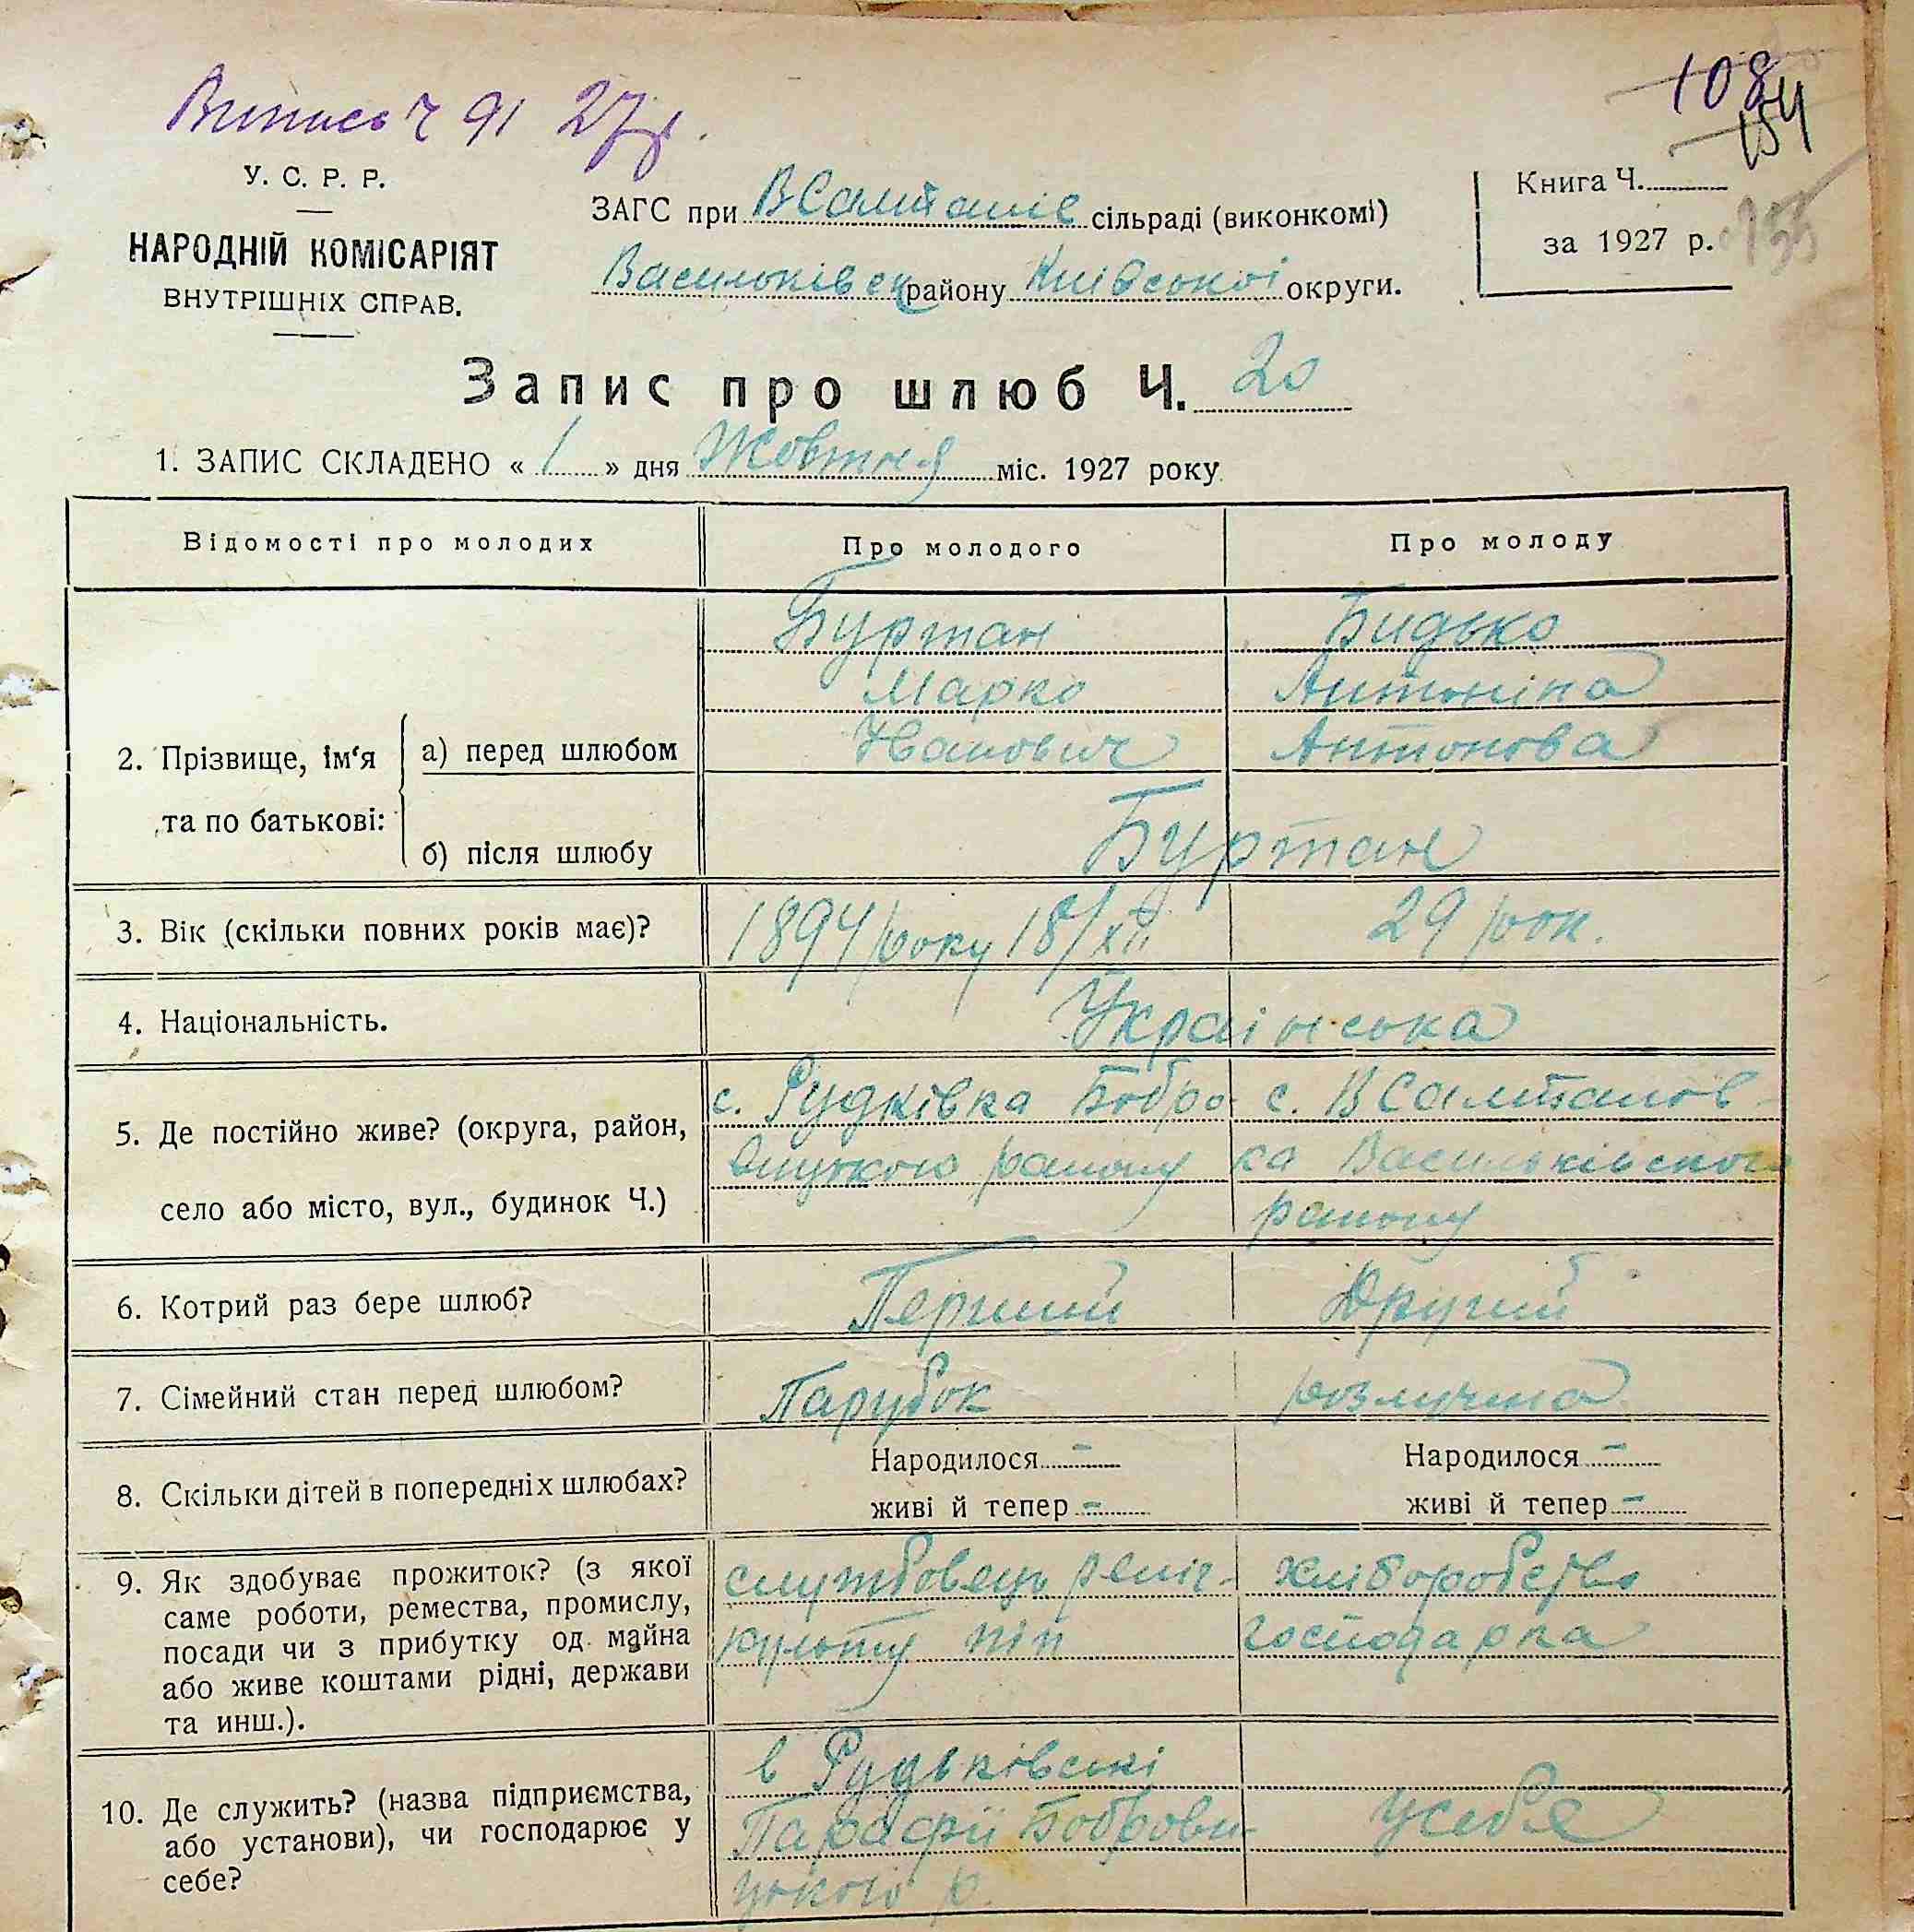 Випись Ч 91 27р.
108
154
155
У. С. Р. Р.
НАРОДНІЙ КОМІСАРІЯТ
ВНУТРІШНІХ СПРАВ.
ЗАГС при ВСалтанів сільраді (виконкомі)
Васильківськ району Київської округи.
Книга Ч.
за 1927 р.
Запис про шлюб Ч. 20
1. ЗАПИС СКЛАДЕНО « 1 » дня Жовтня міс. 1927 року
Відомості про молодих
Про молодого
Про молоду
2. Прізвище, ім'я та по батькові:
а) перед шлюбом
Буртан
Марко
Іванович
Бидько
Антоніна
Антонова
б) після шлюбу
Буртан
3. Вік (скільки повних років має)?
1894 року 18/XII
29 рок.
4. Національність.
Українська
5. Де постійно живе? (округа, район,
село або місто, вул., будинок Ч.)
с. Рудківка Бобро
вицького району
с. ВСалтанов-
ка Васильківського
району
6. Котрий раз бере шлюб?
Перший
Другий
7. Сімейний стан перед шлюбом?
Парубок
розлучена
8. Скільки дітей в попередніх шлюбах?
Народилося -
живі й тепер -
Народилося -
живі й тепер -
9. Як здобуває прожиток? (з якої
саме роботи, ремества, промислу,
посади чи з прибутку од майна
або живе коштами рідні, держави
та инш.).
службовець реліг-
культу піп
хліборобство
господарка
10. Де служить? (назва підприємства,
або установи), чи господарює у
себе?
в Рудьківські
Парафії Боброви-
цького р.
У себе